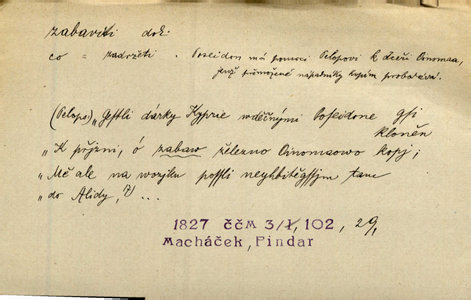 zabaviti dok.
co = zadržeti. Poseidon má pomoci Pelopovi k dceři Oinomaa,
jenž přemožené nápadníky kopím probodává.
(Pelops) „Gestli dárky Kyprie wděčnými Poseidone gsi
kloněn
„K přjzni, ó zabaw železno Oinomaowo kopj;
„Mě ale na wozyku possli neyhbitěgssjm tam
„do Alidy, ...
1827 ČČM 3/1, 102, 29,
Macháček, Pindar